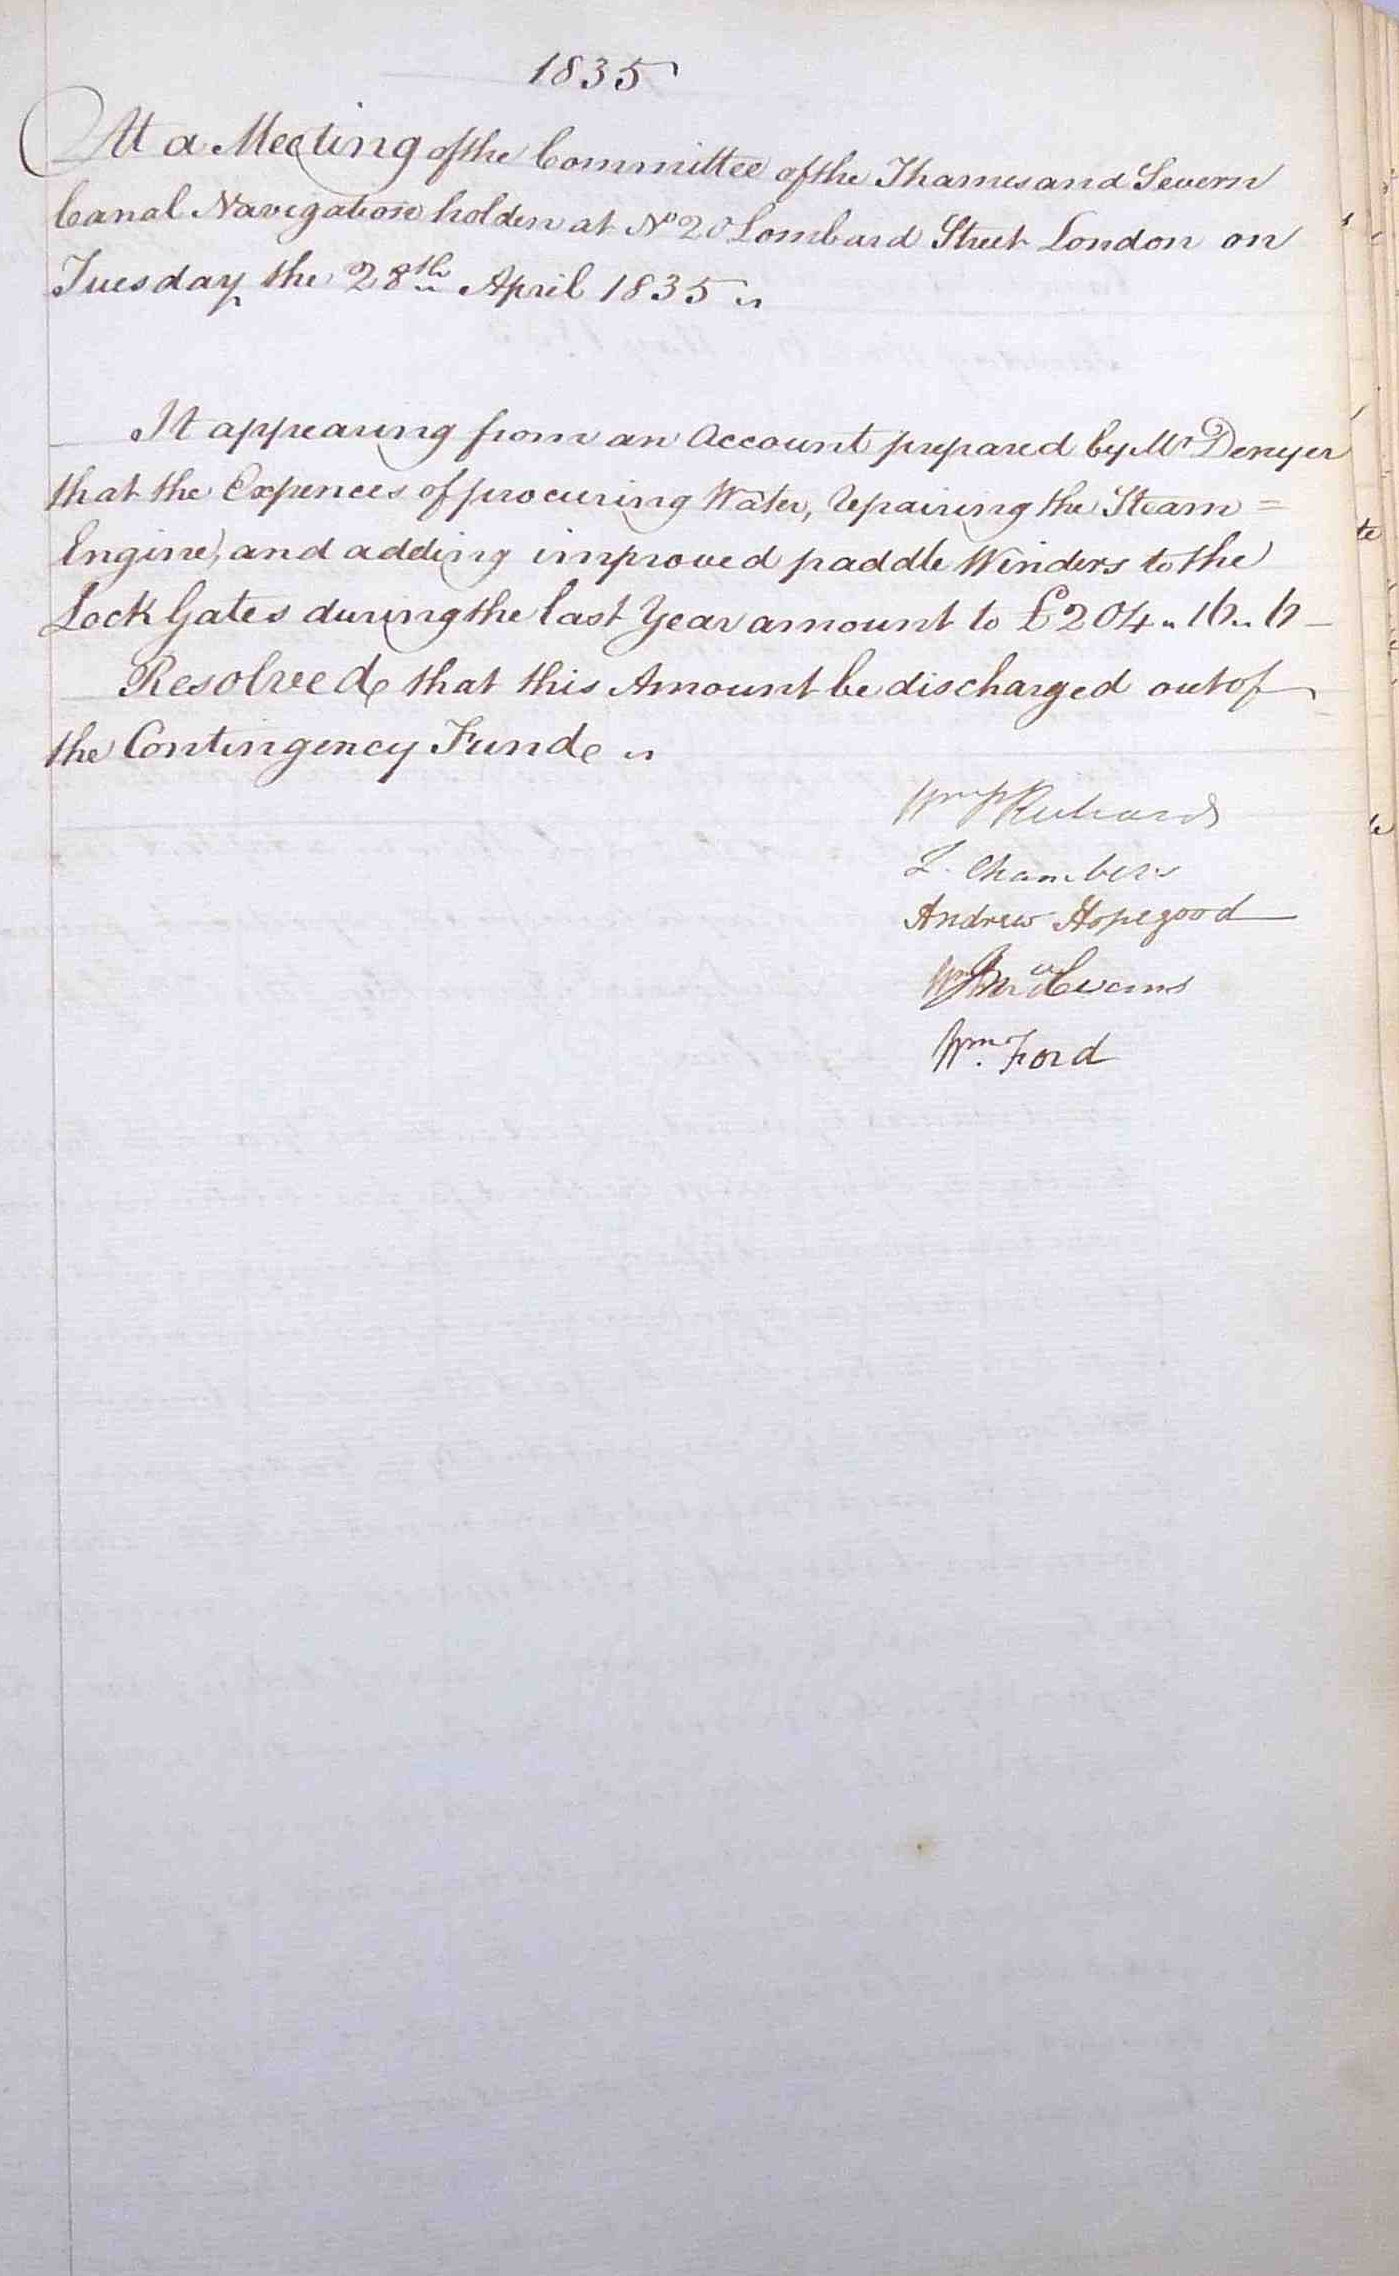 1835
At a Meeting of the Committee of the Thames and Severn
Canal Navigation holden at No 20 Lombard Street London on
Tuesday the 28th April 1835
It appearing from an Account prepared by Mr Denyer
that the Expences of procuring Water, repairing the Steam=
Engine, and adding improved paddle Winders to the
Lock Gates during the last Year amount to £204.. 16.. 6
Resolved that this Amount be discharged out of
the Contingency Fund
Wm P Richards
L. Chambers
Andrew Hopegood
Wm Evans
Wm. Ford
te